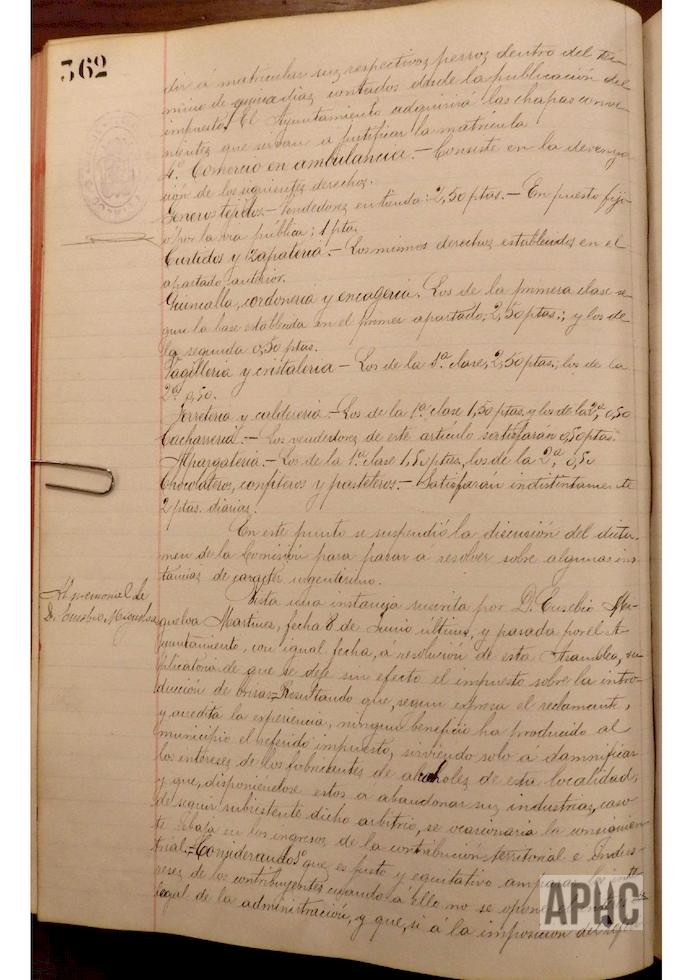 362
dir á matricular sus respectivos perros dentro del tér-
mino de quince dias contados desde la publicación del
impuesto. El Ayuntamiento adquirirá las chapas conve-
nientes que sirvan a justificar la matrícula.
4º Comercio en ambulancia.— Consiste en la devenga
ción de los siguientes derechos.
Géneros tejidos.— Vendedores en tienda: 2,50 ptas.— En puesto fijo
o por la via pública; 1 pta.
Curtidos y zapatería.— Los mismos derechos establecidos en el
apartado anterior.
Quincalla, cordonería y encagería. Los de la primera clase se-
gun la base establecida en el primer apartado, 2,50 ptas.; y los de
la segunda 0,50 ptas.
Vagilleria y cristaleria— Los de la 1ª clase, 2,50 ptas; los de la
2ª 0,50.
Ferreteria y caldereria.— Los de la 1ª clase 1,50 ptas. y los de la 2ª, 0,50
Cacharreria.— Los vendedores de este artículo satisfarán 0,50 ptas.
Alpargateria.— Los de la 1ª clase 1,50 ptas, los de la 2ª, 0,50
Chocolateros, confiteros y pasteleros.— Satisfarán indistintamente
2 ptas. diarias.
En este punto se suspendió la discusión del dicta-
men de la Comisión para pasar a resolver sobre algunas ins-
tancias de caracter urgentísimo.
memorial de
D. Eusebio Miguelva
Vista una instancia suscrita por D. Eusebio Mi-
guelva Martinez, fecha 8 de Junio último, y pasada por el A-
yuntamiento, con igual fecha, á resolución de esta Asamblea, su-
plicatoria de que se deje sin efecto el impuesto sobre la intro-
ducción de brisas= Resultando que, segun expresa el reclamante,
y acredita la experiencia, ningun beneficio ha producido al
municipio el referido impuesto, sirviendo solo á damnificar
los intereses de los fabricantes de alcoholes de esta localidad,
y que, disponiéndose estos a abandonar sus industrias, caso
de seguir subsistente dicho arbitrio, se ocasionaria la consiguien-
te rebaja en los ingresos de la contribución territorial e indus-
trial.= Considerando que es justo y equitativo amparar los inte-
reses de los contribuyentes cuando á ello no se opone
legal de la administración, y que, si á la imposicion del
APHC